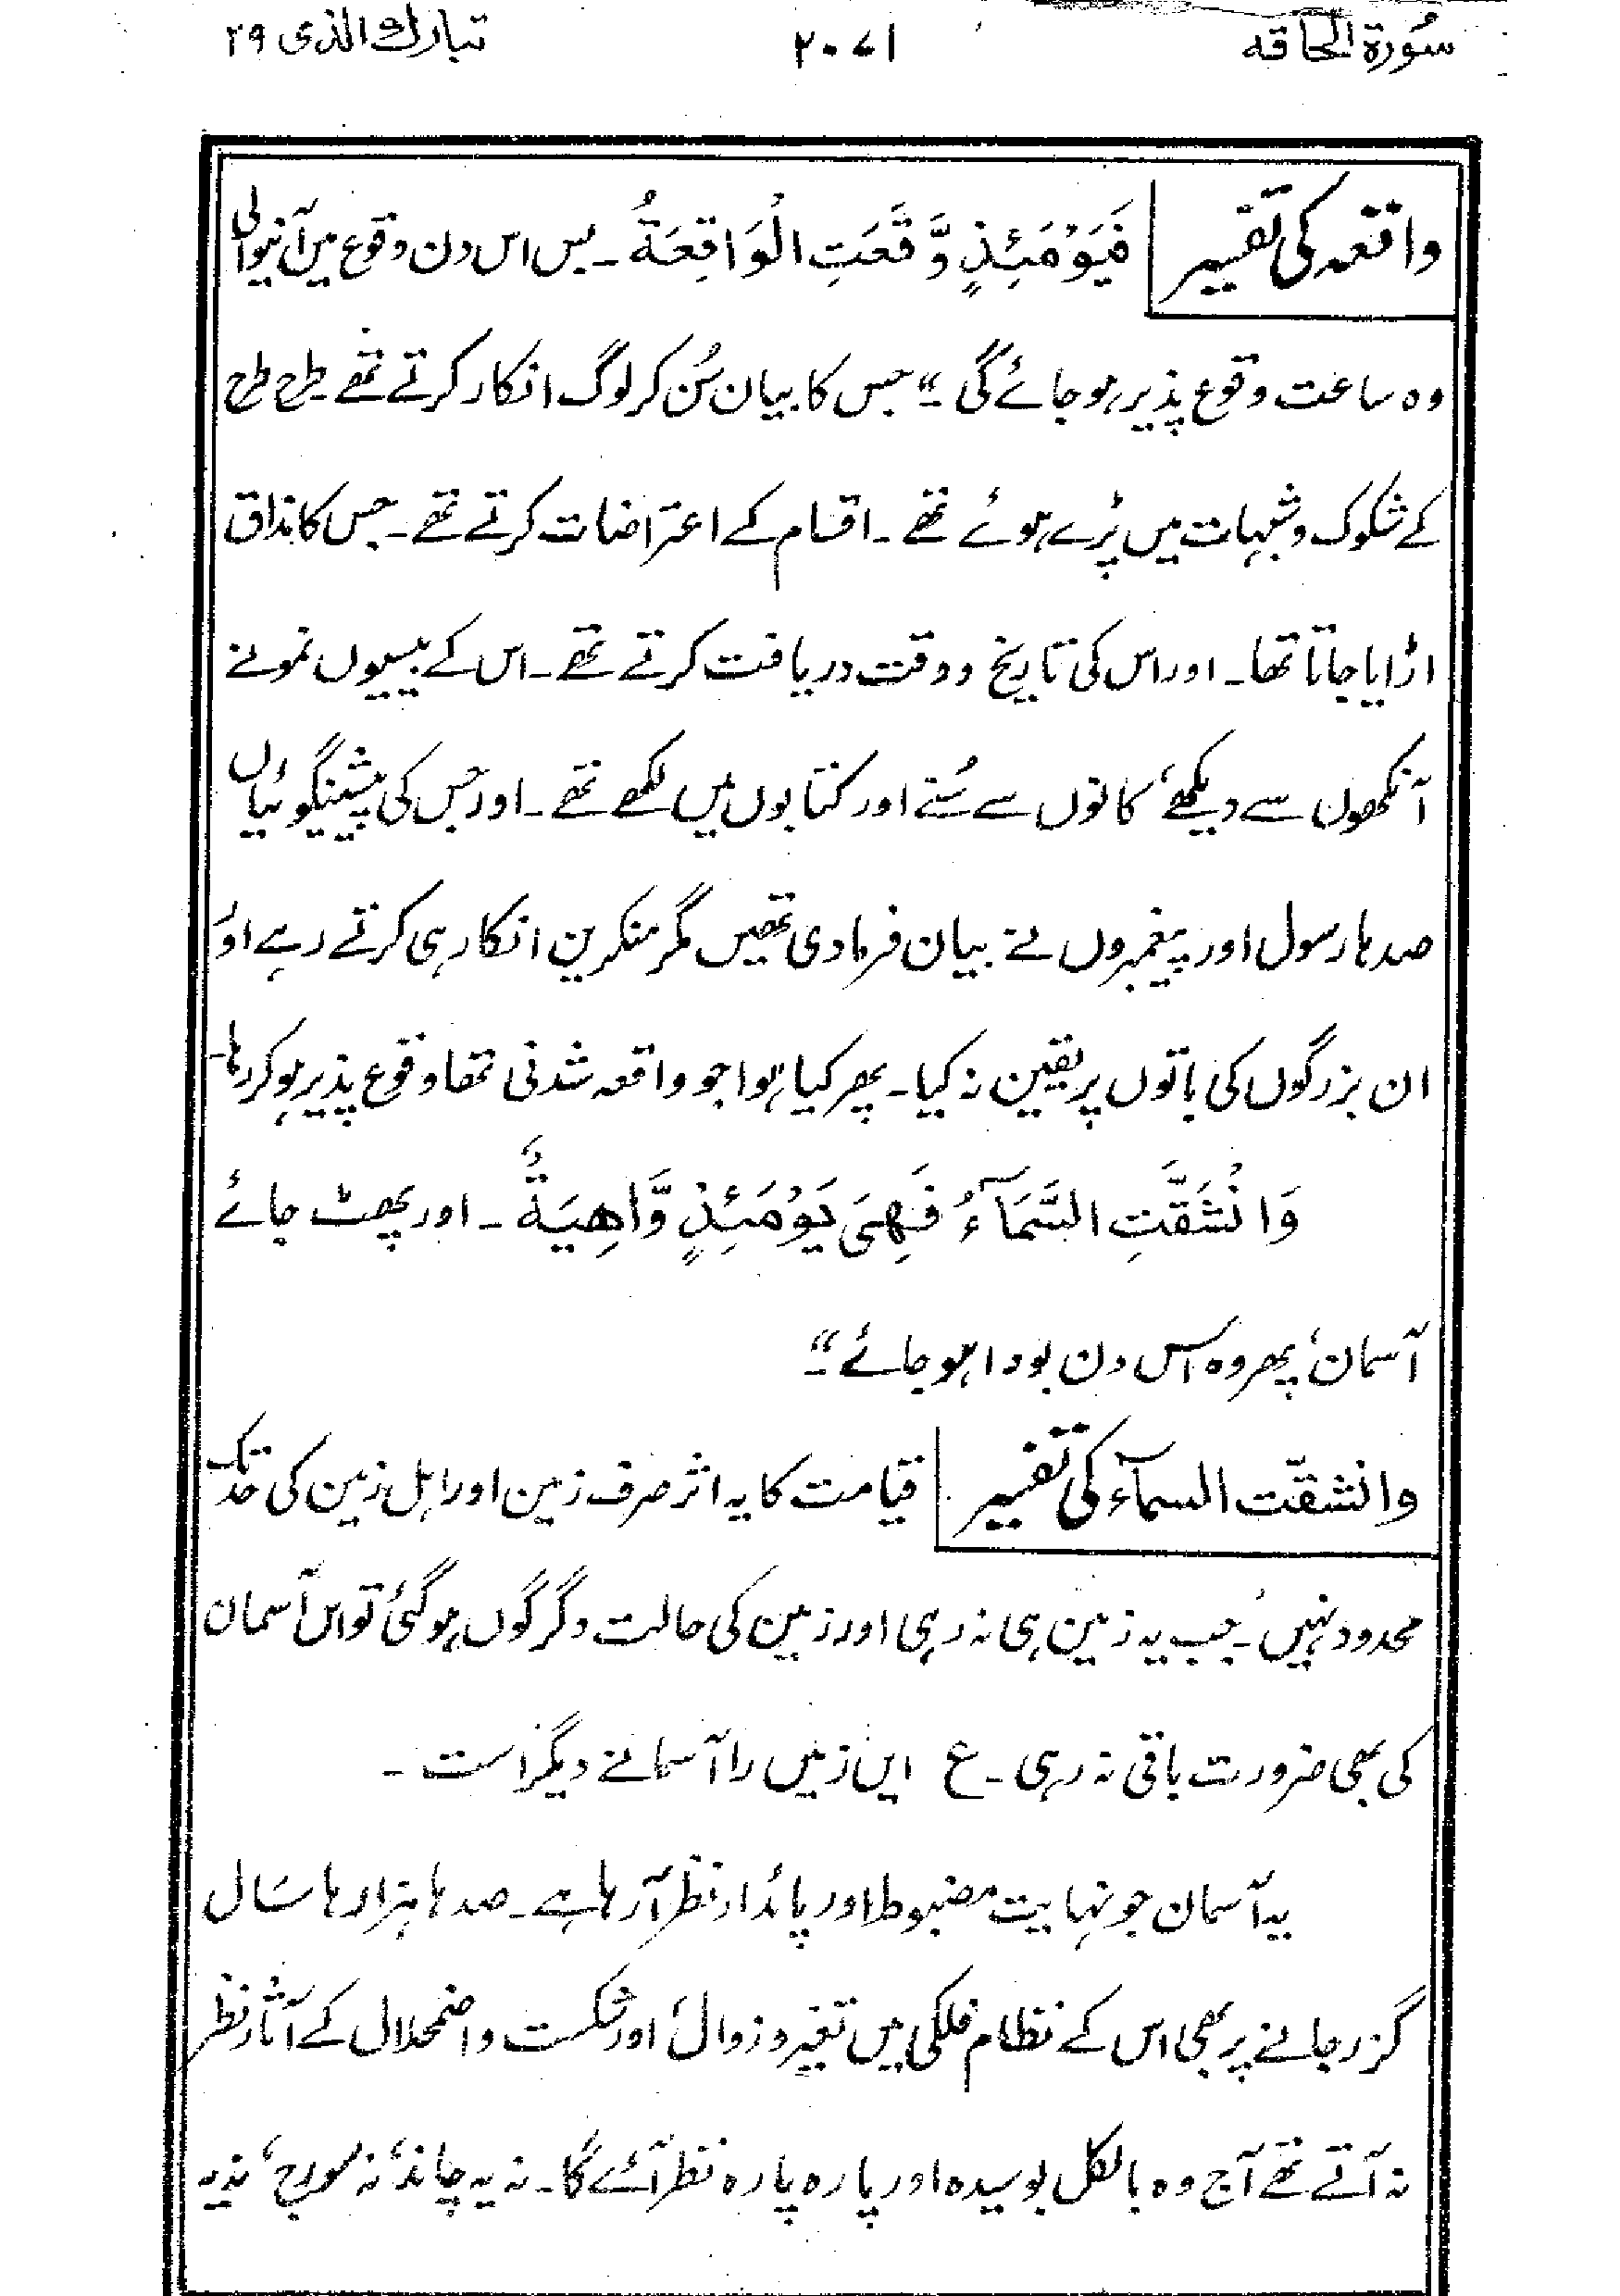 سُورۃ الحاقہ ۲۰۷۱ تبارك الذی ۲۹
واقعہ کی تفسیر فَيَوْمَئِذٍ وَّقَعَتِ الْوَاقِعَةُ ۔ پس اس دن وقوع میں آنیوالی
وہ ساعت وقوع پذیر ہو جائے گی ‘‘۔ جس کا بیان سُن کر لوگ انکار کرتے تھے طرح طرح
کے شکوک و شبہات میں پڑے ہوئے تھے ۔ اقسام کے اعتراضات کرتے تھے ۔ جس کا مذاق
اڑایا جاتا تھا ۔ اور اس کی تاریخ و وقت دریافت کرتے تھے ۔ اس کے بیسیوں نمونے
آنکھوں سے دیکھے، کانوں سے سُنے اور کتابوں میں لکھے تھے ۔ اور جس کی پیشینگوئیاں
صدہا رسول اور پیغمبروں نے بیان فرما دی تھیں مگر منکرین انکار ہی کرتے رہے اور
ان بزرگوں کی باتوں پر یقین نہ کیا ۔ پھر کیا ہوا جو واقعہ شدنی تھا وقوع پذیر ہو کر رہا۔
وَانْشَقَّتِ السَّمَآءُ فَهِیَ يَوْمَئِذٍ وَّاهِيَةٌ ۔ اور پھٹ جائے
آسمان، پھر وہ اس دن بودا ہو جائے ‘‘۔
وانشقّت السمآء کی تفسیر قیامت کا یہ اثر صرف زمین اور اہل زمین کی حد تک
محدود نہیں ۔ جب یہ زمین ہی نہ رہی اور زمین کی حالت دگرگوں ہو گئی تو اس آسمان
کی بھی ضرورت باقی نہ رہی ۔ ع ایں زمیں را آسمانے دیگر است ۔
یہ آسمان جو نہایت مضبوط اور پائدار نظر آ رہا ہے ۔ صدہا ہزارہا سَال
گزر جانے پر بھی اس کے نظام فلکی میں تغیّر و زوال اور شکست و اضمحلال کے آثار نظر
نہ آتے تھے آج وہ بالکل بوسیدہ اور پارہ پارہ نظر آئے گا ۔ نہ یہ چاند، نہ سورج، نہ یہ